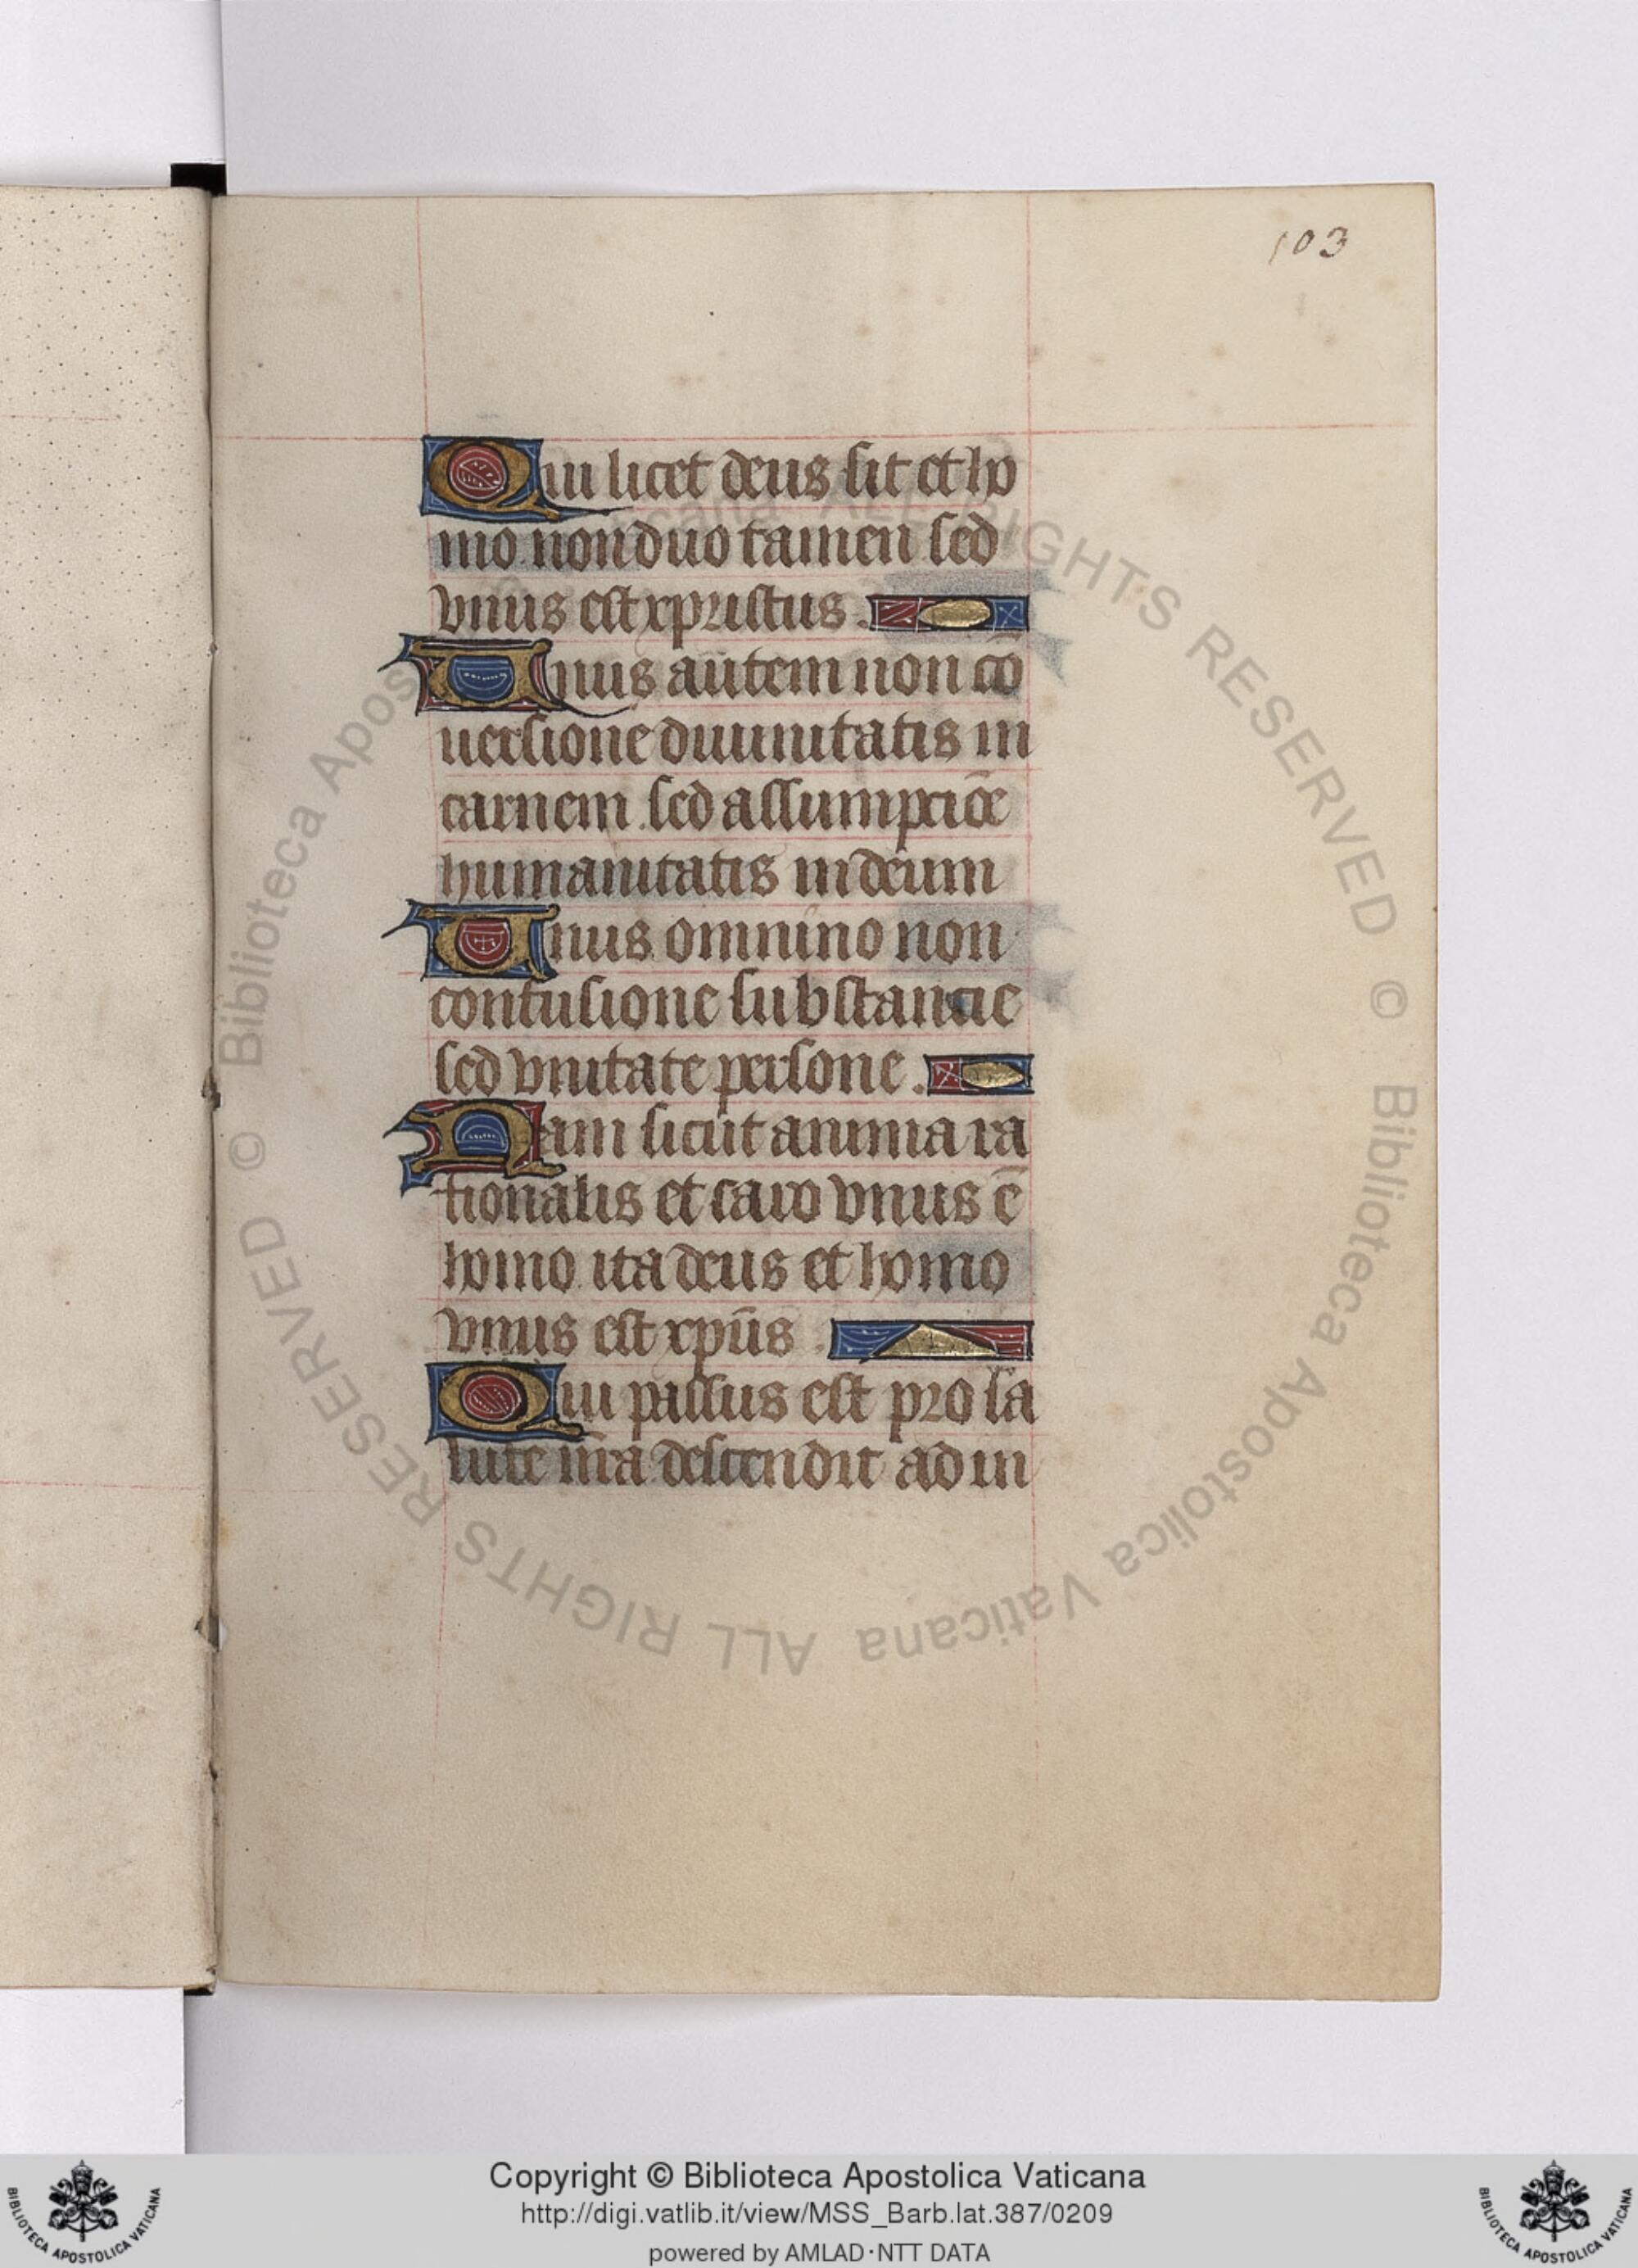 103
Qui licet deus sit et ho
mo non duo tamen sed
vnus est xpristus.
Vnus autem non cō
uersione diuinitatis in
carnem sed assumpciōe
humanitatis in deum
Vnus omnino non
confusione substancie
sed vnitate persone.
Nam sicut anima ra
tionalis et caro vnus ē
homo ita deus et homo
vnus est xpūs.
Qui passus est pro sa
lute nr̄a descendit ad in
© Biblioteca Apostolica Vaticana ALL RIGHTS RESERVED
© Biblioteca Apostolica Vaticana ALL RIGHTS RESERVED
Copyright © Biblioteca Apostolica Vaticana
http://digi.vatlib.it/view/MSS_Barb.lat.387/0209
powered by AMLAD·NTT DATA
BIBLIOTECA APOSTOLICA VATICANA
BIBLIOTECA APOSTOLICA VATICANA